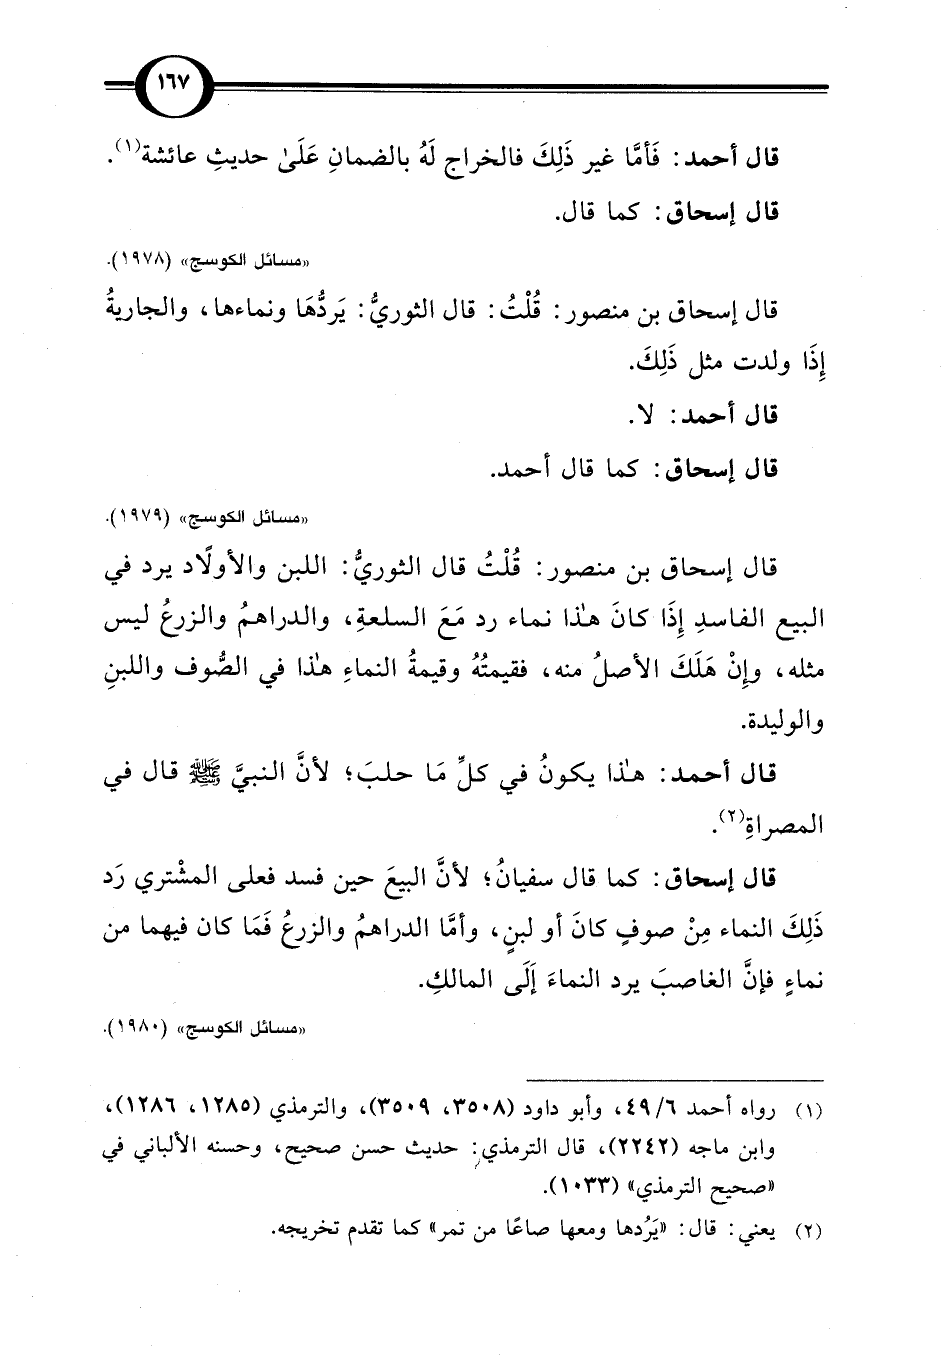 ١٦٧
قال أحمد: فَأمَّا غير ذَلِكَ فالخراج لَهُ بالضمانِ عَلَىٰ حديثِ عائشة(١).
قال إسحاق: كما قال.
«مسائل الكوسج» (١٩٧٨).
قال إسحاق بن منصور: قُلْتُ: قال الثوريُّ: يَردُّهَا ونماءها، والجاريةُ
إِذَا ولدت مثل ذَلِكَ.
قال أحمد: لا.
قال إسحاق: كما قال أحمد.
«مسائل الكوسج» (١٩٧٩).
قال إسحاق بن منصور: قُلْتُ قال الثوريُّ: اللبن والأولًاد يرد في
البيع الفاسدِ إِذَا كانَ هذٰا نماء رد مَعَ السلعةِ، والدراهمُ والزرعُ ليس
مثله، وإِنْ هَلَكَ الأصلُ منه، فقيمتُهُ وقيمةُ النماءِ هذٰا في الصُّوف واللبنِ
والوليدة.
قال أحمد: هذٰا يكونُ في كلِّ مَا حلبَ؛ لأنَّ النبيَّ ﷺ قال في
المصراةِ(٢).
قال إسحاق: كما قال سفيانُ؛ لأنَّ البيعَ حين فسد فعلى المشْتري رَد
ذَلِكَ النماء مِنْ صوفٍ كانَ أو لبنٍ، وأمَّا الدراهمُ والزرعُ فَمَا كان فيهما من
نماءٍ فإنَّ الغاصبَ يرد النماءَ إَلَى المالكِ.
«مسائل الكوسج» (١٩٨٠).
(١) رواه أحمد ٦/ ٤٩، وأبو داود (٣٥٠٨، ٣٥٠٩)، والترمذي (١٢٨٥، ١٢٨٦)،
وابن ماجه (٢٢٤٢)، قال الترمذي: حديث حسن صحيح، وحسنه الألباني في
«صحيح الترمذي» (١٠٣٣).
(٢) يعني: قال: «يَرُدها ومعها صاعًا من تمر» كما تقدم تخريجه.